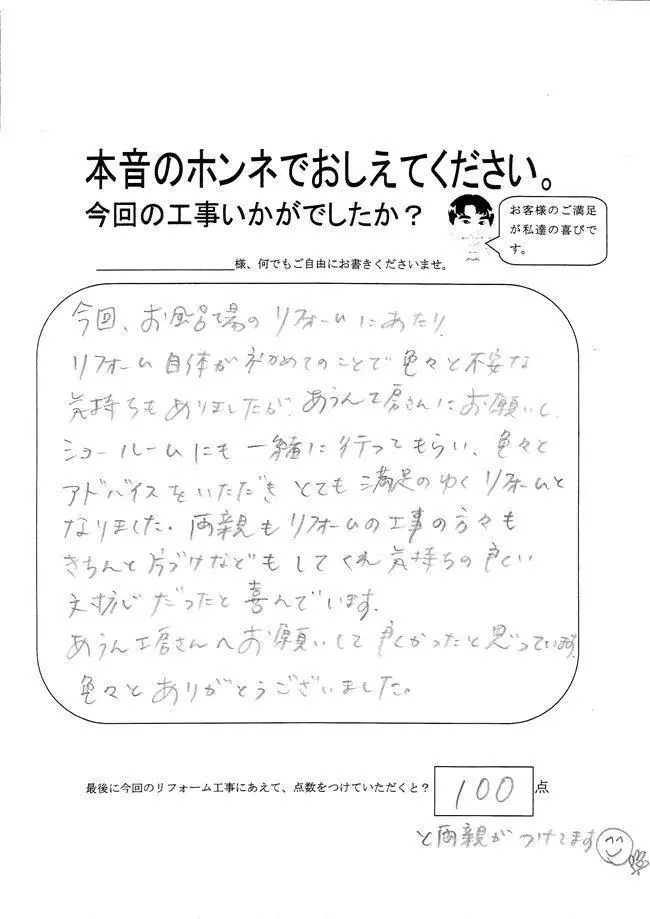 本音のホンネでおしえてください。
今回の工事いかがでしたか？
お客様のご満足
が私達の喜びで
す。
様、何でもご自由にお書きくださいませ。
今回、お風呂場のリフォームにあたり
リフォーム自体が初めてのことで色々と不安な
気持ちもありましたが、あうん工房さんにお願いし、
ショールームにも一緒に行ってもらい、色々と
アドバイスをいただき とても満足のゆくリフォームと
なりました。両親もリフォームの工事の方々も
きちんと片づけなどもしてくれ気持ちの良い
対応だったと喜んでいます。
あうん工房さんへお願いして良かったと思っています。
色々とありがとうございました。
最後に今回のリフォーム工事にあえて、点数をつけていただくと？ 100 点
と両親がつけてます